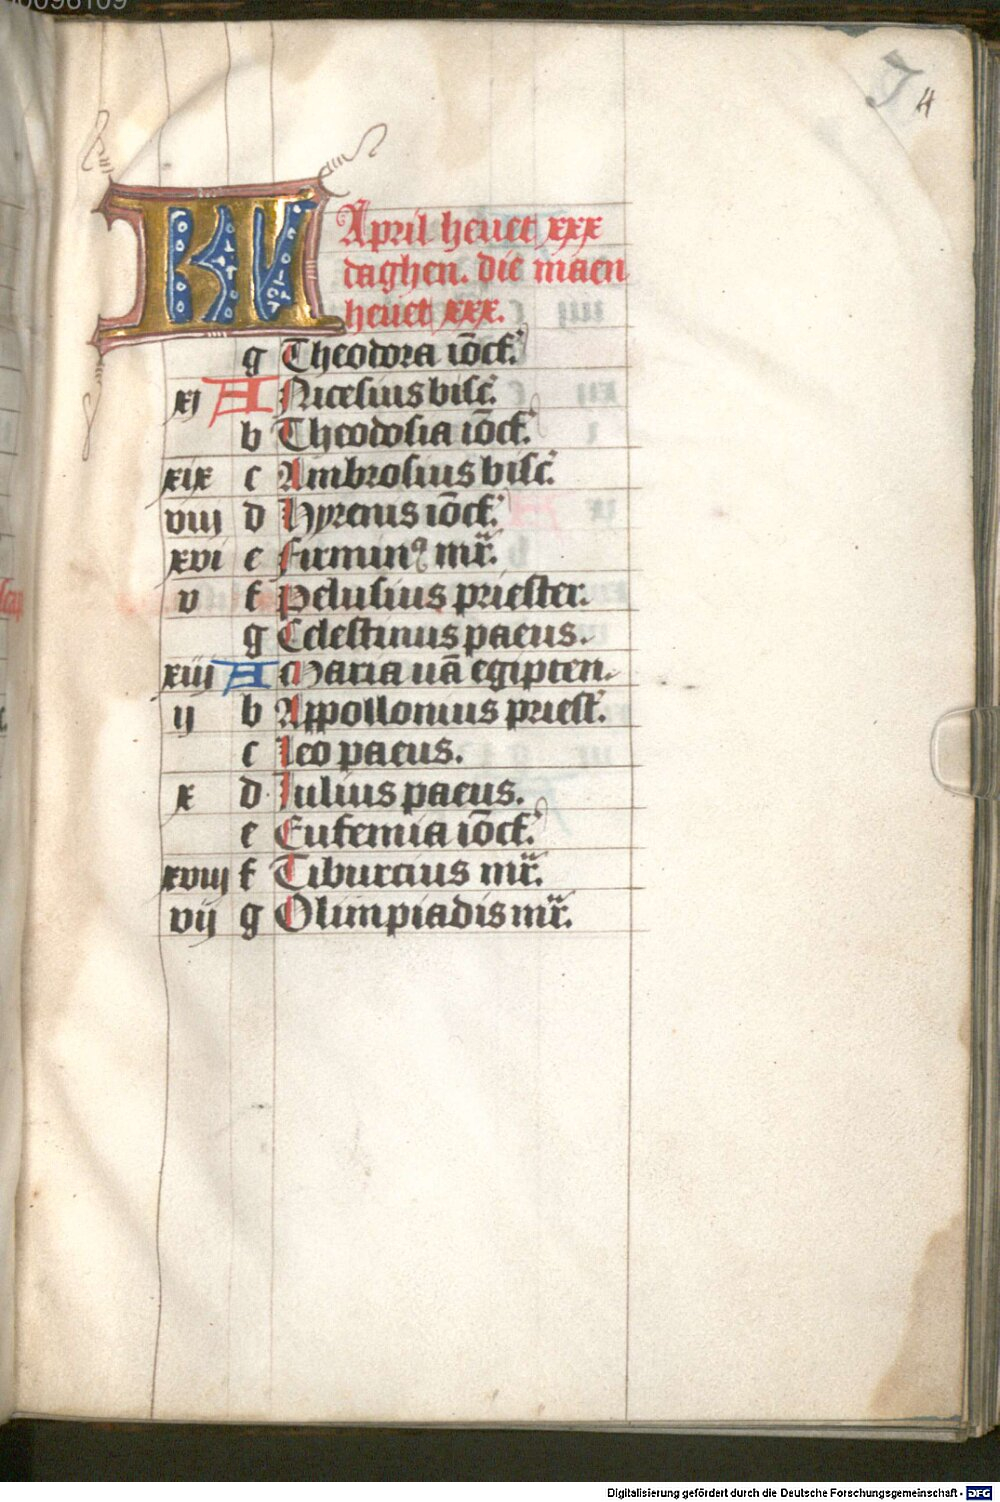 00096109
J 4
KL
April heuet xxx
daghen. die maen
heuet xxx.
g Theodora iōcf.
xj A Nicesius bisc.
b Theodosia iōcf.
xix c Ambrosius bisc.
viij d Hyreus iōcf.
xvi e Firmin9 mr.
v f Pelusius priester.
g Celestinus paeus.
xiij A Maria uā egipten.
ij b Appollonius priest.
c Leo paeus.
x d Iulius paeus.
e Eufemia iōcf.
xviij f Tiburcius mr.
vij g Olimpiadis mr.
Digitalisierung gefördert durch die Deutsche Forschungsgemeinschaft - DFG